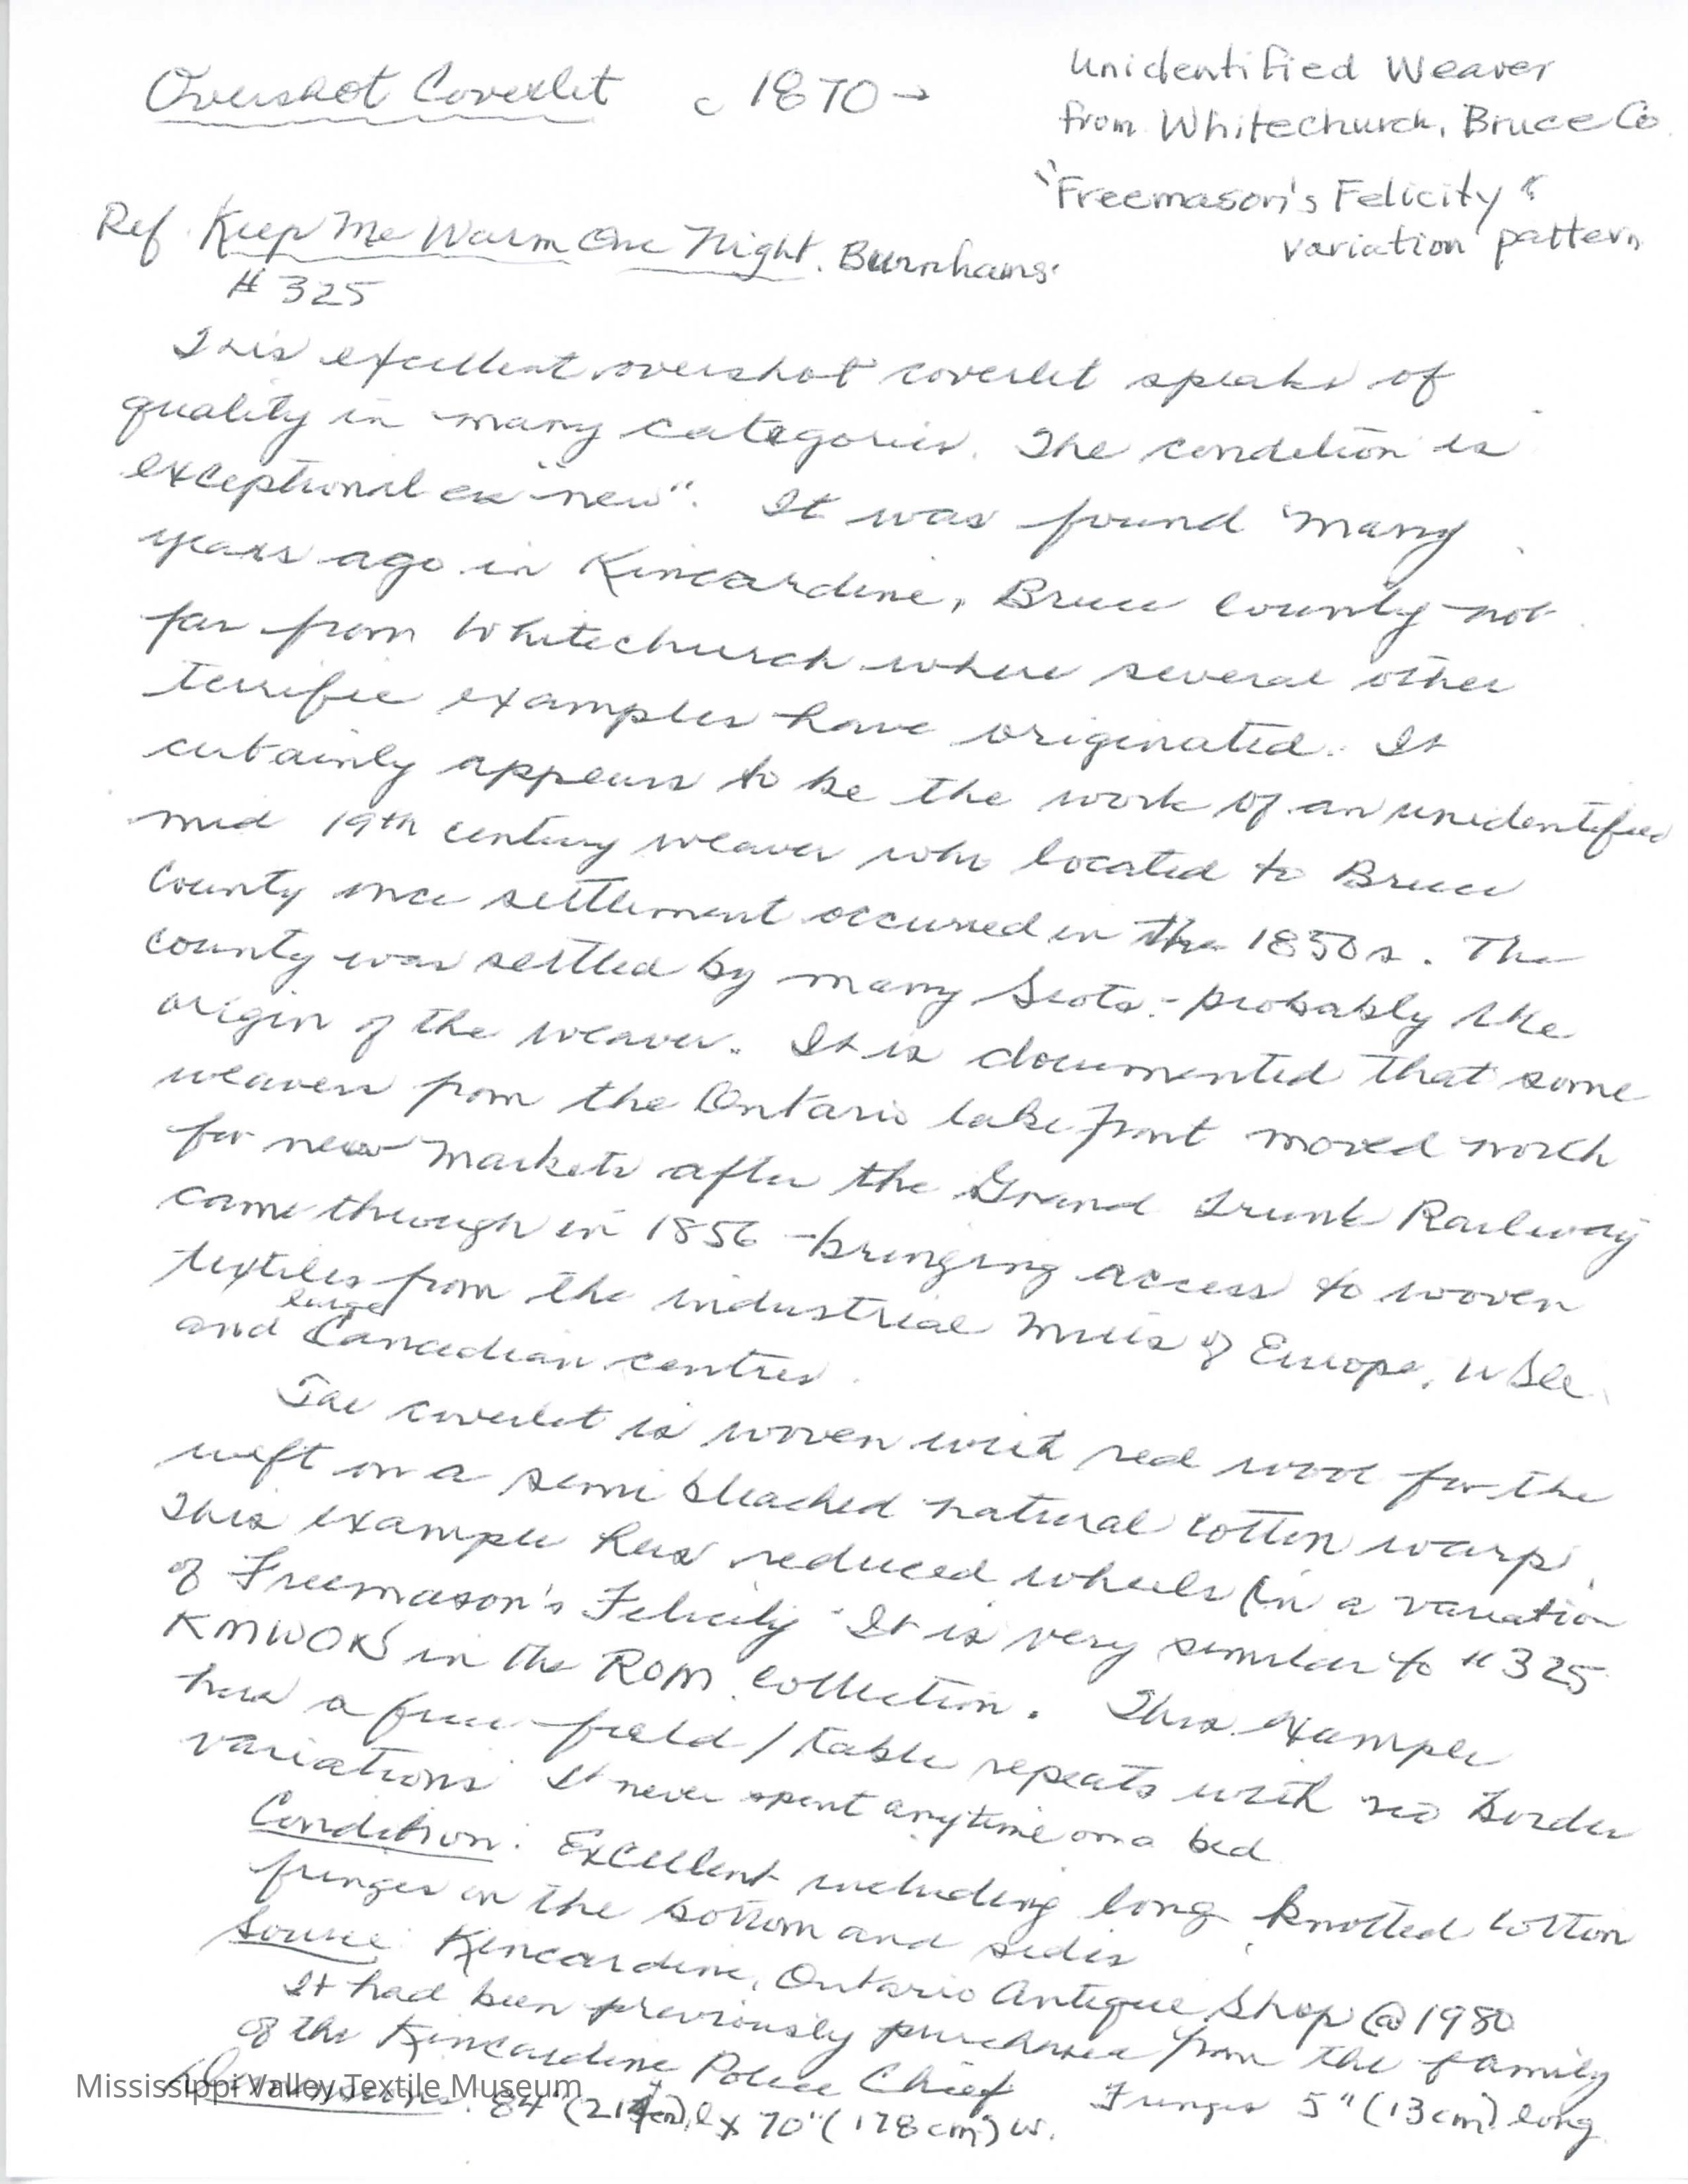 Overshot Coverlet c 1870→
Unidentified Weaver
from Whitechurch, Bruce Co.
"Freemason's Felicity"
variation pattern
Ref. Keep Me Warm One Night. Burnhams.
# 325
This excellent overshot coverlet speaks of
quality in many categories. The condition is
exceptional as "new". It was found many
years ago in Kincardine, Bruce County not
far from Whitechurch where several other
terrific examples have originated. It
certainly appears to be the work of an unidentified
mid 19th century weaver who located to Bruce
County once settlement occurred in the 1850s. The
county was settled by many Scots - probably the
origin of the weaver. It is documented that some
weavers from the Ontario lake front moved north
for new markets after the Grand Trunk Railway
came through in 1856 - bringing access to woven
textiles from the industrial mills of Europe,
and large Canadian centres.
The coverlet is woven with red wool for the
weft on a semi bleached natural cotton warp.
This example has reduced wheels (in a variation
of Freemason's Felicity It is very similar to #325
KMWON in the ROM collection. This example
has a free field / table repeats with no border
variations It never spent anytime on a bed
Condition: Excellent including long knotted cotton
fringes on the bottom and sides
Source: Kincardine, Ontario Antique Shop @ 1980
It had been previously purchased from the family
of the Kincardine Police Chief Fringes 5" (13cm) long
Dimensions: 84" (214cm) l x 70" (178cm) w.
Mississippi Valley Textile Museum